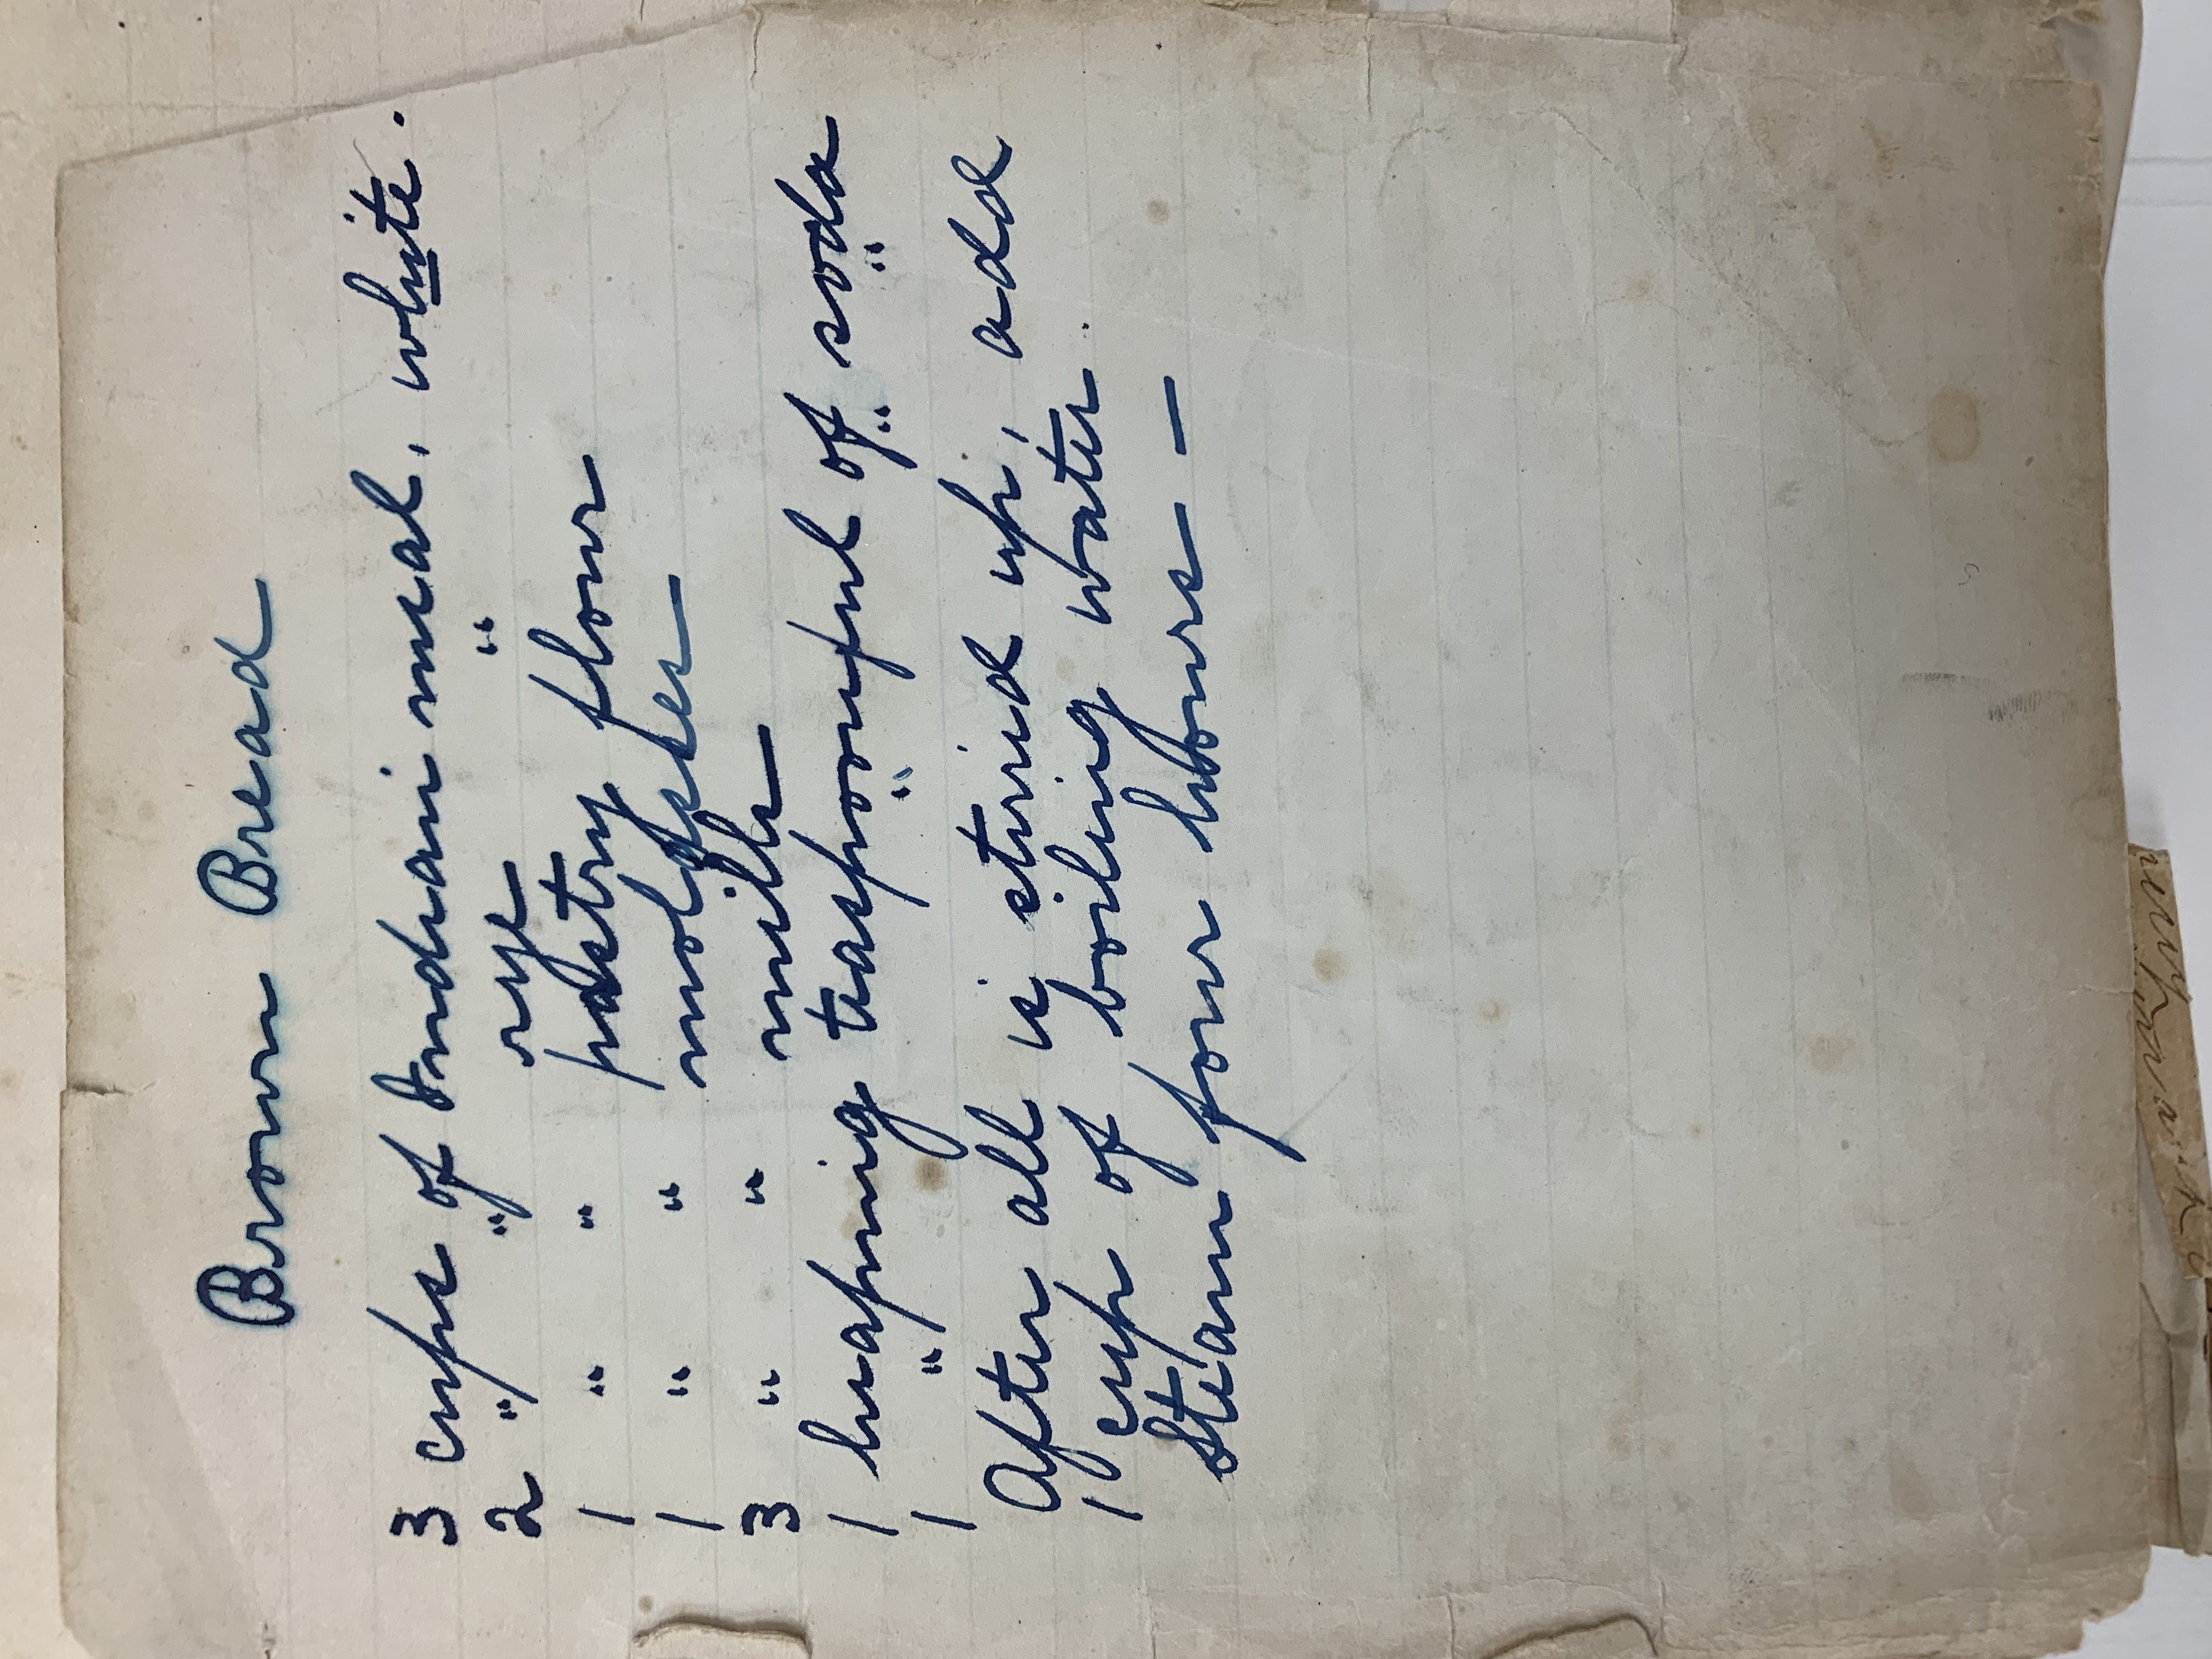 Brown Bread
3 cups of Indian meal, white.
2 " " rye "
1 " " pastry flour
1 " " molasses
3 " " milk
1 heaping teaspoonful of soda
1 " " " "
After all is stirred up, add
1 cup of boiling water.
Steam four hours —